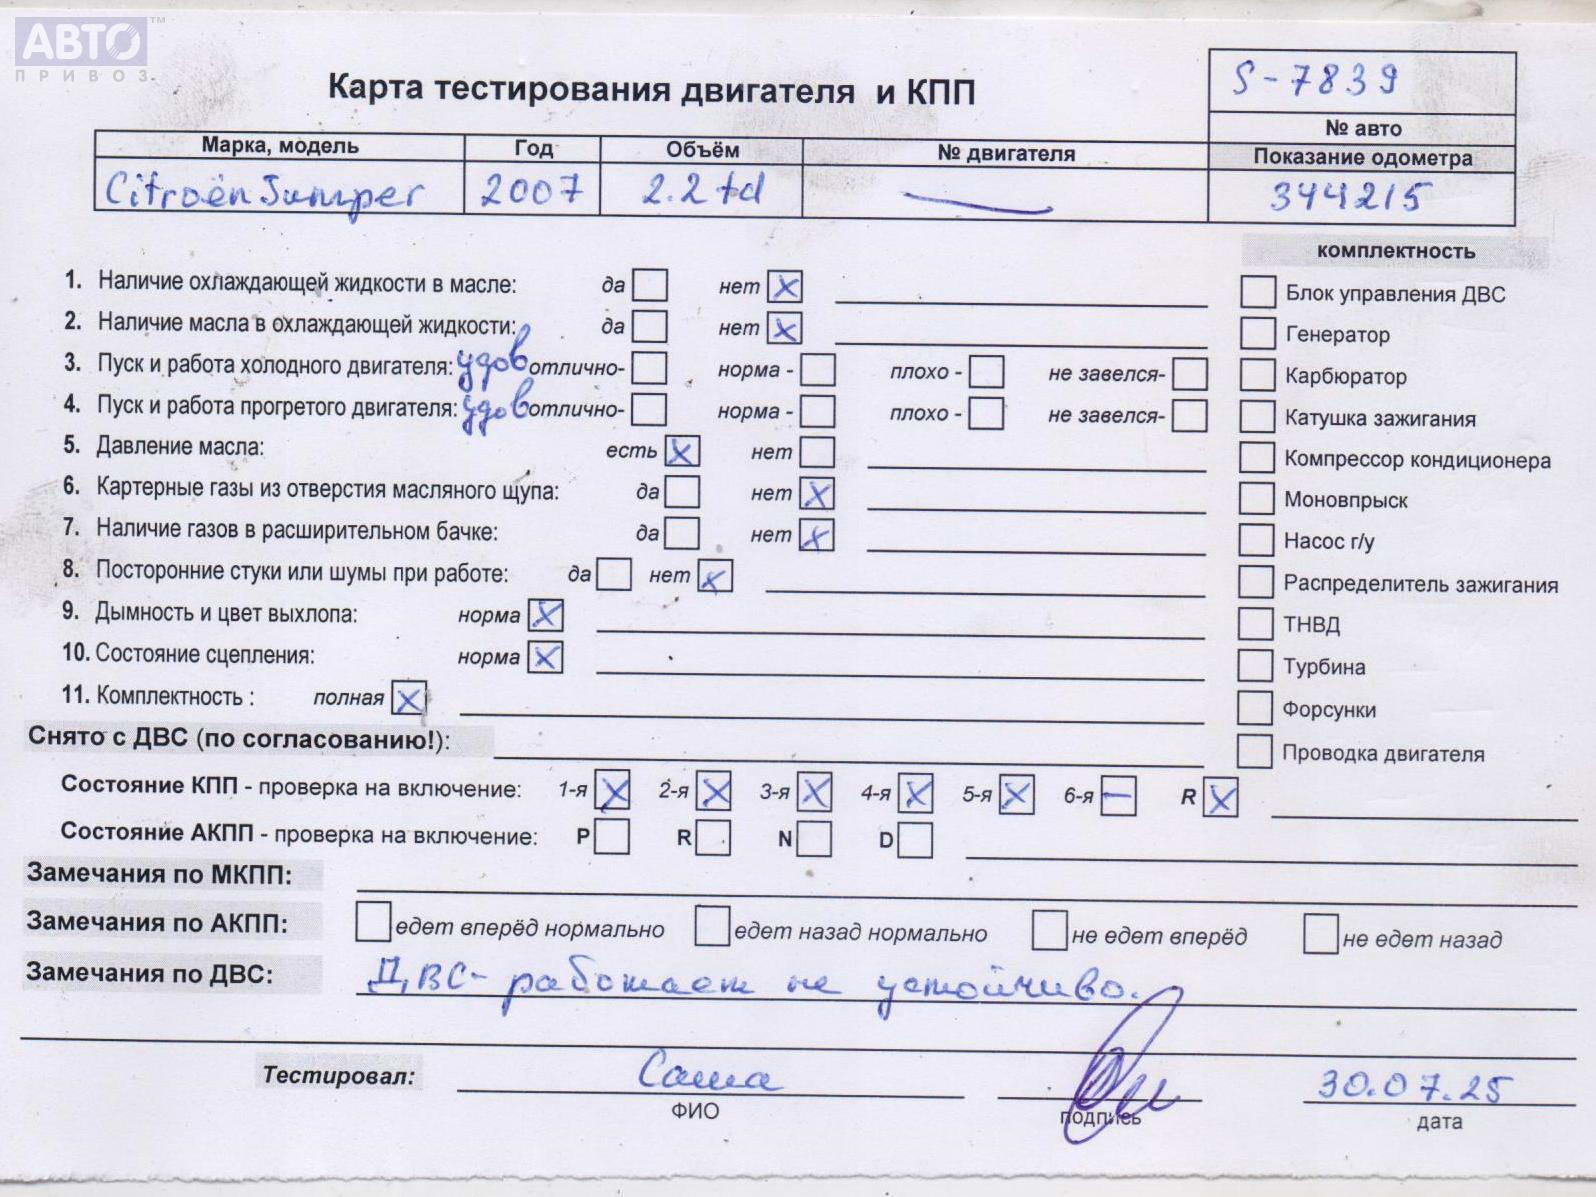 АВТО™
ПРИВОЗ
S-7839
Карта тестирования двигателя и КПП
№ авто
Марка, модель Год Объём № двигателя Показание одометра
Citroën Jumper 2007 2.2 td — 344215
комплектность
1. Наличие охлаждающей жидкости в масле: да нет x
Блок управления ДВС
2. Наличие масла в охлаждающей жидкости: да нет x
Генератор
3. Пуск и работа холодного двигателя: удов отлично- норма - плохо - не завелся-
Карбюратор
4. Пуск и работа прогретого двигателя: удов отлично- норма - плохо - не завелся-
Катушка зажигания
5. Давление масла: есть x нет
Компрессор кондиционера
6. Картерные газы из отверстия масляного щупа: да нет x
Моновпрыск
7. Наличие газов в расширительном бачке: да нет x
Насос г/у
8. Посторонние стуки или шумы при работе: да нет x
Распределитель зажигания
9. Дымность и цвет выхлопа: норма x
ТНВД
10. Состояние сцепления: норма x
Турбина
11. Комплектность : полная x
Форсунки
Снято с ДВС (по согласованию!):
Проводка двигателя
Состояние КПП - проверка на включение: 1-я x 2-я x 3-я x 4-я x 5-я x 6-я — R x
Состояние АКПП - проверка на включение: P R N D
Замечания по МКПП:
Замечания по АКПП: едет вперёд нормально едет назад нормально не едет вперёд не едет назад
Замечания по ДВС: ДВС- работает не устойчиво.
Тестировал: Саша 30.07.25
ФИО подпись дата